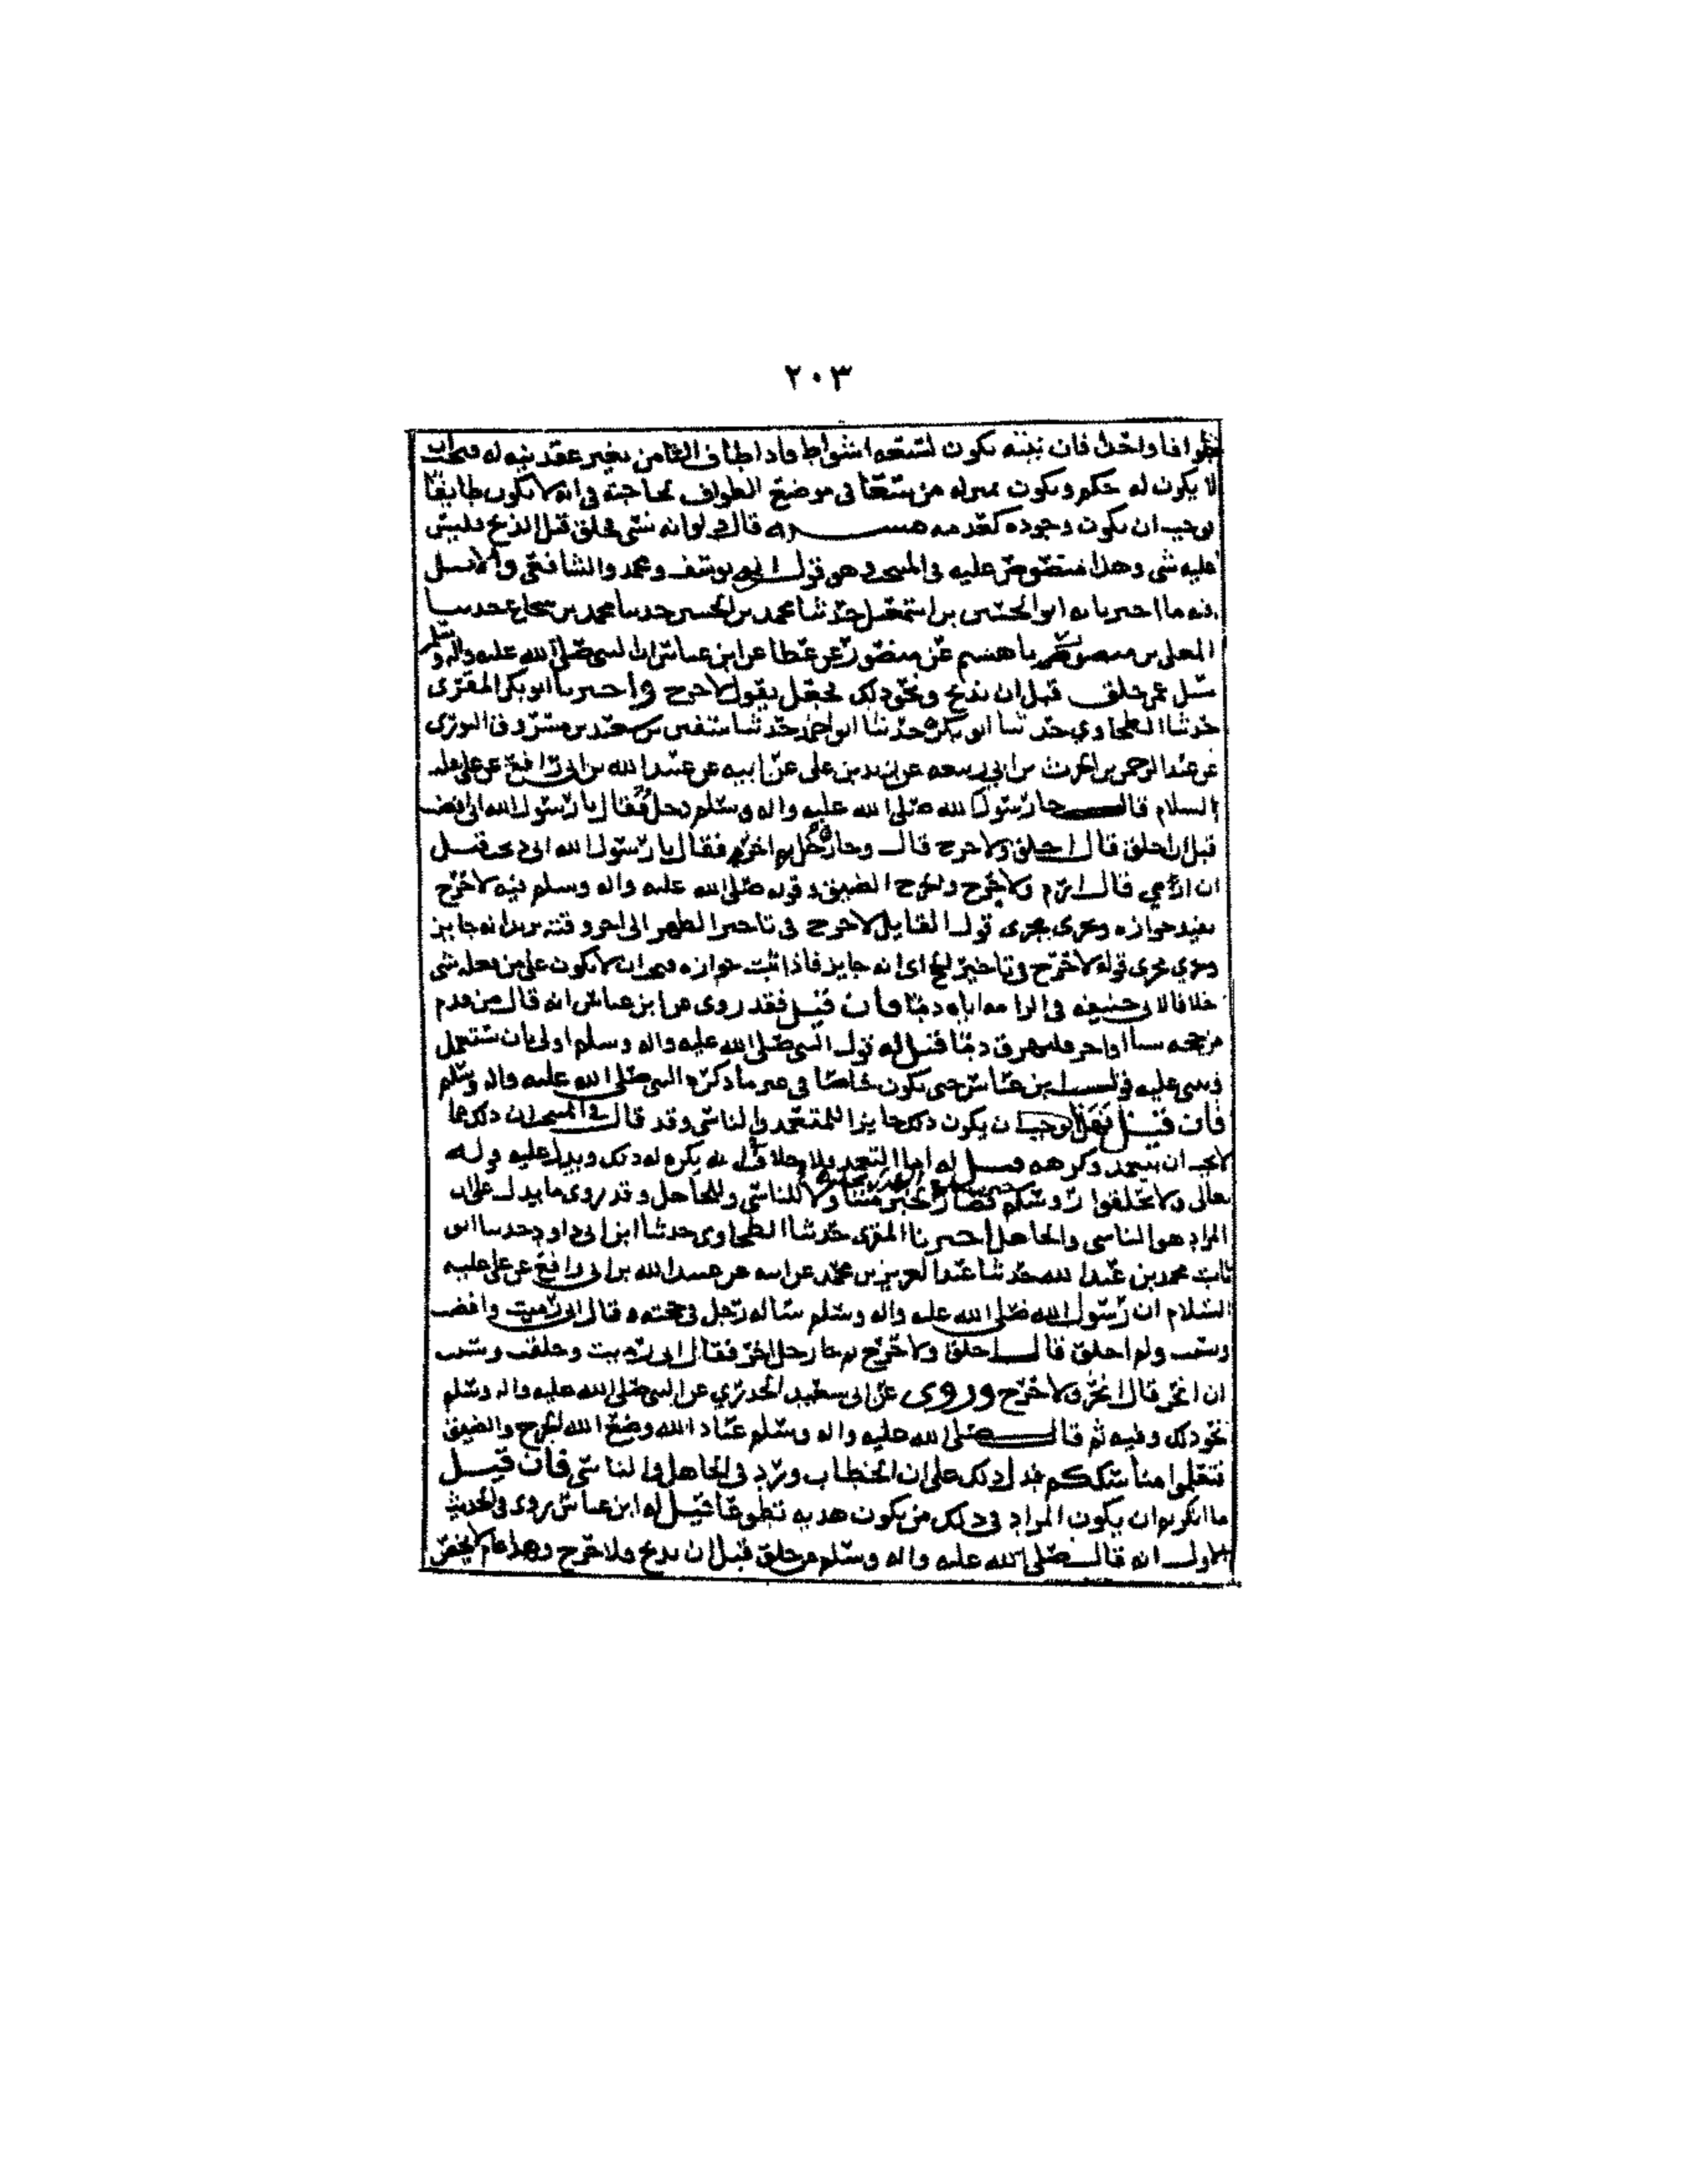 ٢٠٣
طوافا واحدا فان نيته تكون لسبعه اشواط فاذا طاف الثامن بغير عقد نيه له فيجب ان
لا يكون له حكم ويكون بمنزله من سعا في موضع الطواف لحاجته في انه لا يكون طايفا
يوجب ان تكون وجوده كعدمه مسئله قال ولو انه نسي فحلق قبل الذبح فليس
عليه شي وهذا منصوص عليه في المنتخب وهو قول ابي يوسف ومحمد والشافعي والاصل
فيه ما اخبرنا به ابو الحسين بن اسمعيل حدثنا محمد بن الحسين حدثنا محمد بن شجاع حدثنا
المعلى بن منصور حدثنا هشيم عن منصور عن عطا عن ابن عباس ان النبي صلى الله عليه واله وسلم
سئل عمن حلق قبل ان يذبح ونحو ذلك فجعل يقول لا حرج واخبرنا ابو بكر المقري
حدثنا الطحاوي حدثنا ابو بكره حدثنا ابو احمد حدثنا سفين بن سعيد بن مسروق الثوري
عن عبد الرحمن بن الحرث بن ابي ربيعه عن زيد بن علي عن ابيه عن عبيد الله بن ابي رافع عن علي عليه
السلام قال جا رسول الله صلى الله عليه واله وسلم رجل فقال يا رسول الله اني افضت
قبل ان احلق قال احلق ولا حرج قال وجا رجل اخر فقال يا رسول الله اني ذبحت قبل
ان ارمي قال ارم ولا حرج والحرج الضيق وقوله صلى الله عليه واله وسلم فيه لا حرج
يفيد جوازه وجرى مجرى قول القايل لا حرج في تاخير الظهر الى اخر وقته يريد انه جايز
وجرى مجرى قوله لا حرج في تاخير الحج اى انه جايز فاذا ثبت جوازه فيجب ان لا يكون على من فعله شي
خلافا لابي حنيفه في الزامه اياه دما فان قيل فقد روى عن ابن عباس انه قال من قدم
من حجه شيا او اخر فليهرق دما قيل له قول النبي صلى الله عليه واله وسلم اولى بان يستعمل
ويبنى عليه قول ابن عباس حتى يكون خاصا في غير ما ذكره النبي صلى الله عليه واله وسلم
فان قيل فهذا يوجب ان يكون ذلك جايزا للمتعمد والناسي وقد قال في المنتخب ان ذلك مما
لا يجب ان يتعمد وكرهه قيل له اما التعمد فلا خلاف انه يكره له ذلك ويدل عليه قوله
تعالى ولا تحلقوا رؤسكم فصار الخبر متناولا للناسي وللجاهل وقد روى ما يدل على ان
المراد هو الناسي والجاهل اخبرنا المقري حدثنا الطحاوي حدثنا ابن ابي داود حدثنا ابو
ثابت محمد بن عبيد الله حدثنا عبد العزيز بن محمد عن ابيه عن عبيد الله بن ابي رافع عن علي عليه
السلام ان رسول الله صلى الله عليه واله وسلم ساله رجل في حجته وقال اني رميت وافضت
ونسيت ولم احلق قال احلق ولا حرج ثم جا رجل اخر فقال اني رميت وحلقت ونسيت
ان انحر قال انحر ولا حرج وروى عن ابي سعيد الخدري عن النبي صلى الله عليه واله وسلم
نحو ذلك وفيه ثم قال صلى الله عليه واله وسلم عباد الله وضع الله الحرج والضيق
فتعلموا مناسككم فدل ذلك على ان الخطاب ورد في الجاهل والناسي فان قيل
ما انكرتم ان يكون المراد في ذلك من يكون هديه تطوعا قيل له ابن عباس يروى في الحديث
الاول انه قال صلى الله عليه واله وسلم من حلق قبل ان يذبح فلا حرج وهذا عام لا يخص